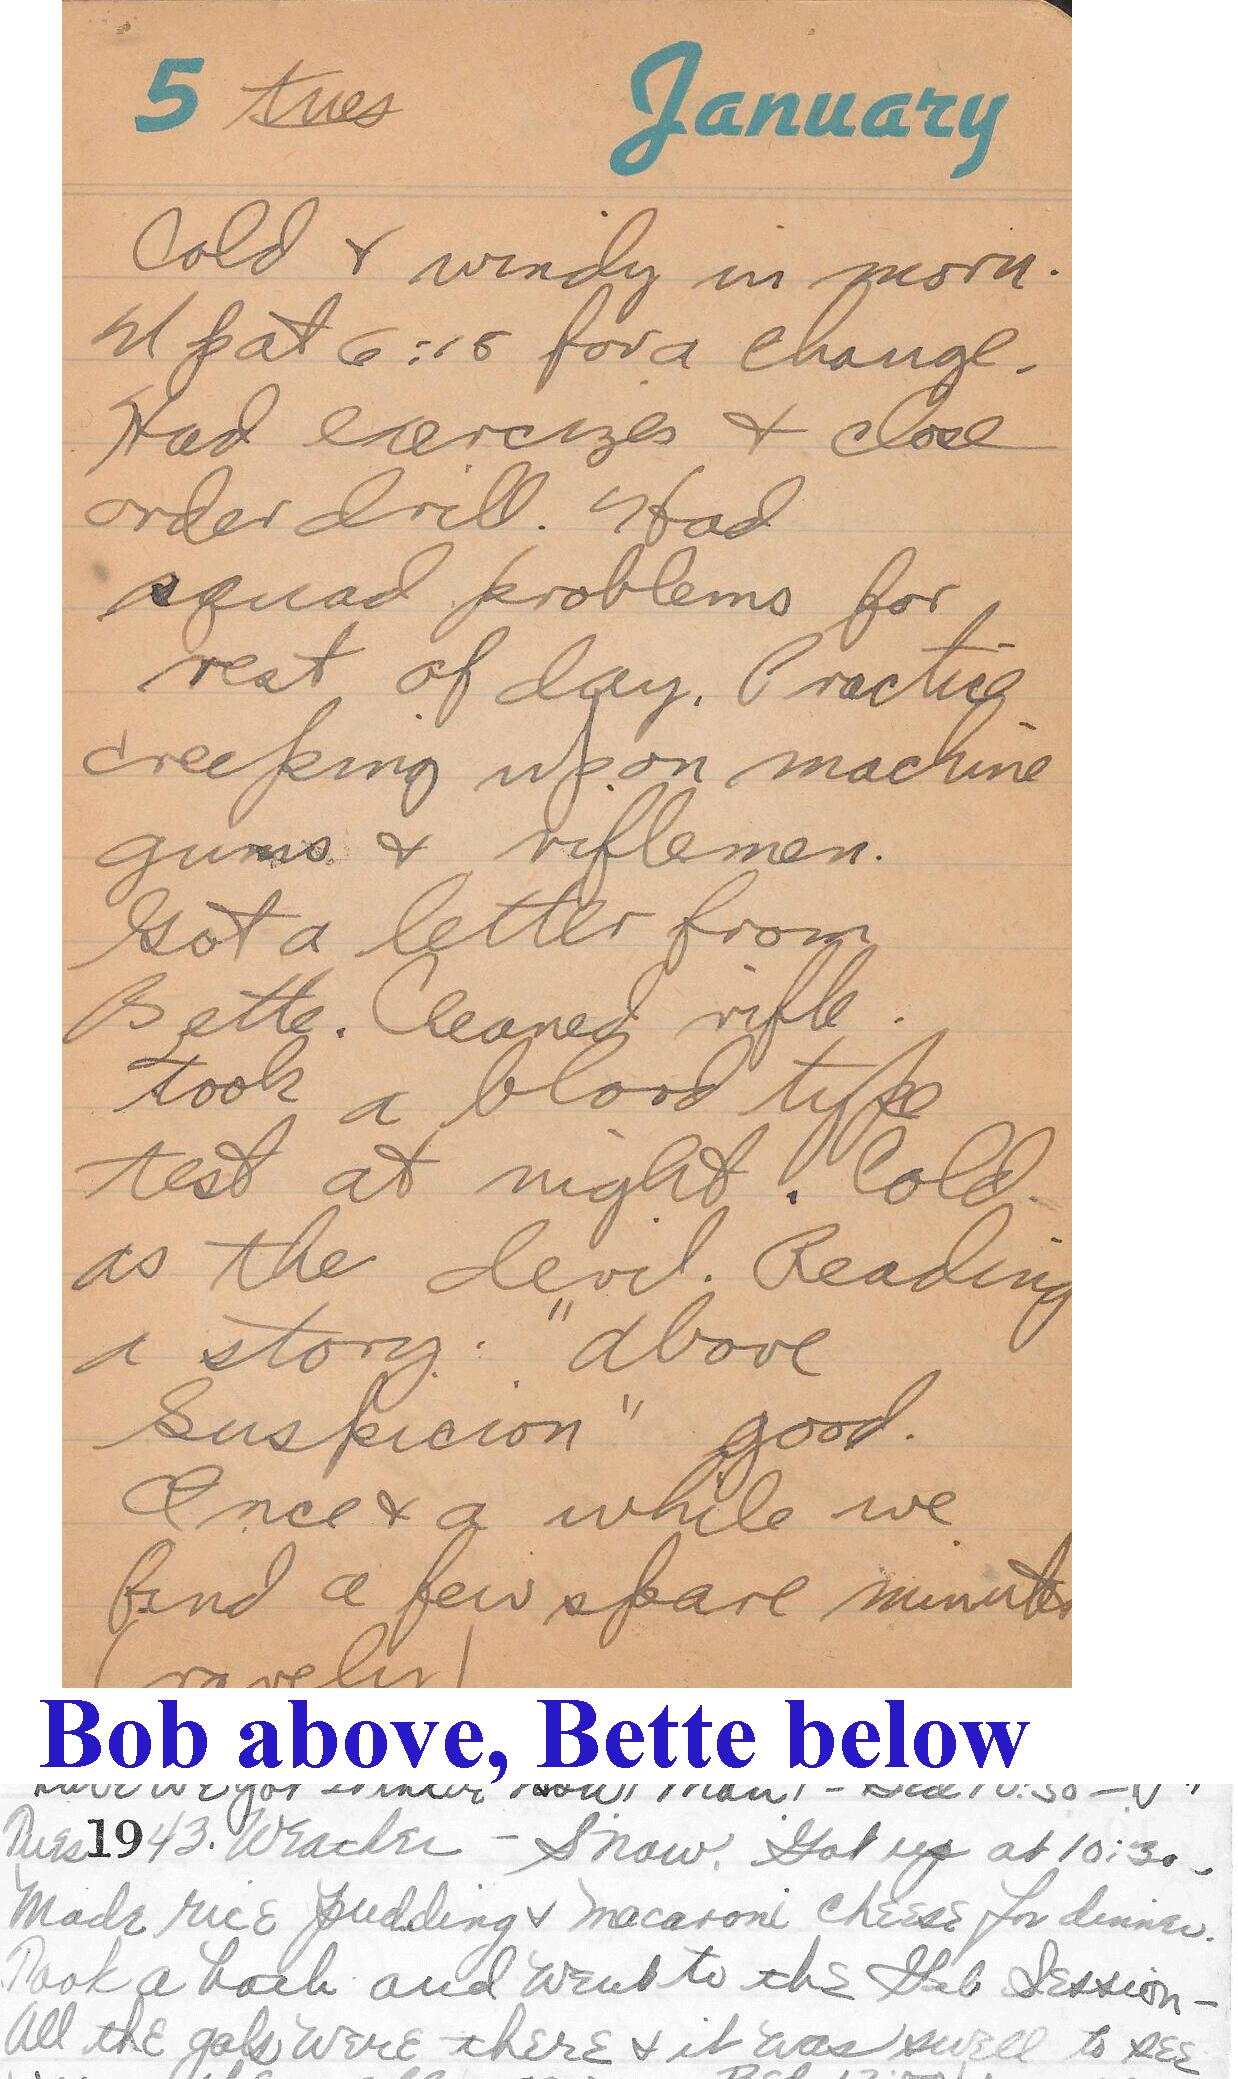 5 tues January
Cold & windy in morn.
Up at 6:15 for a change.
Had exercizes & close
order drill. Had
squad problems for
rest of day. Practice
creeping up on machine
guns & riflemen.
Got a letter from
Bette. Cleaned rifle.
Took a blood type
test at night. Cold
as the devil. Reading
a story. "Above
Suspicion" good.
Once & a while we
find a few spare minutes
Bob above, Bette below
Tues 1943. Weather - Snow. Got up at 10:30.
Made rice pudding & macaroni cheese for dinner.
Took a bath and went to the Gab Session -
All the gals were there & it was swell to see